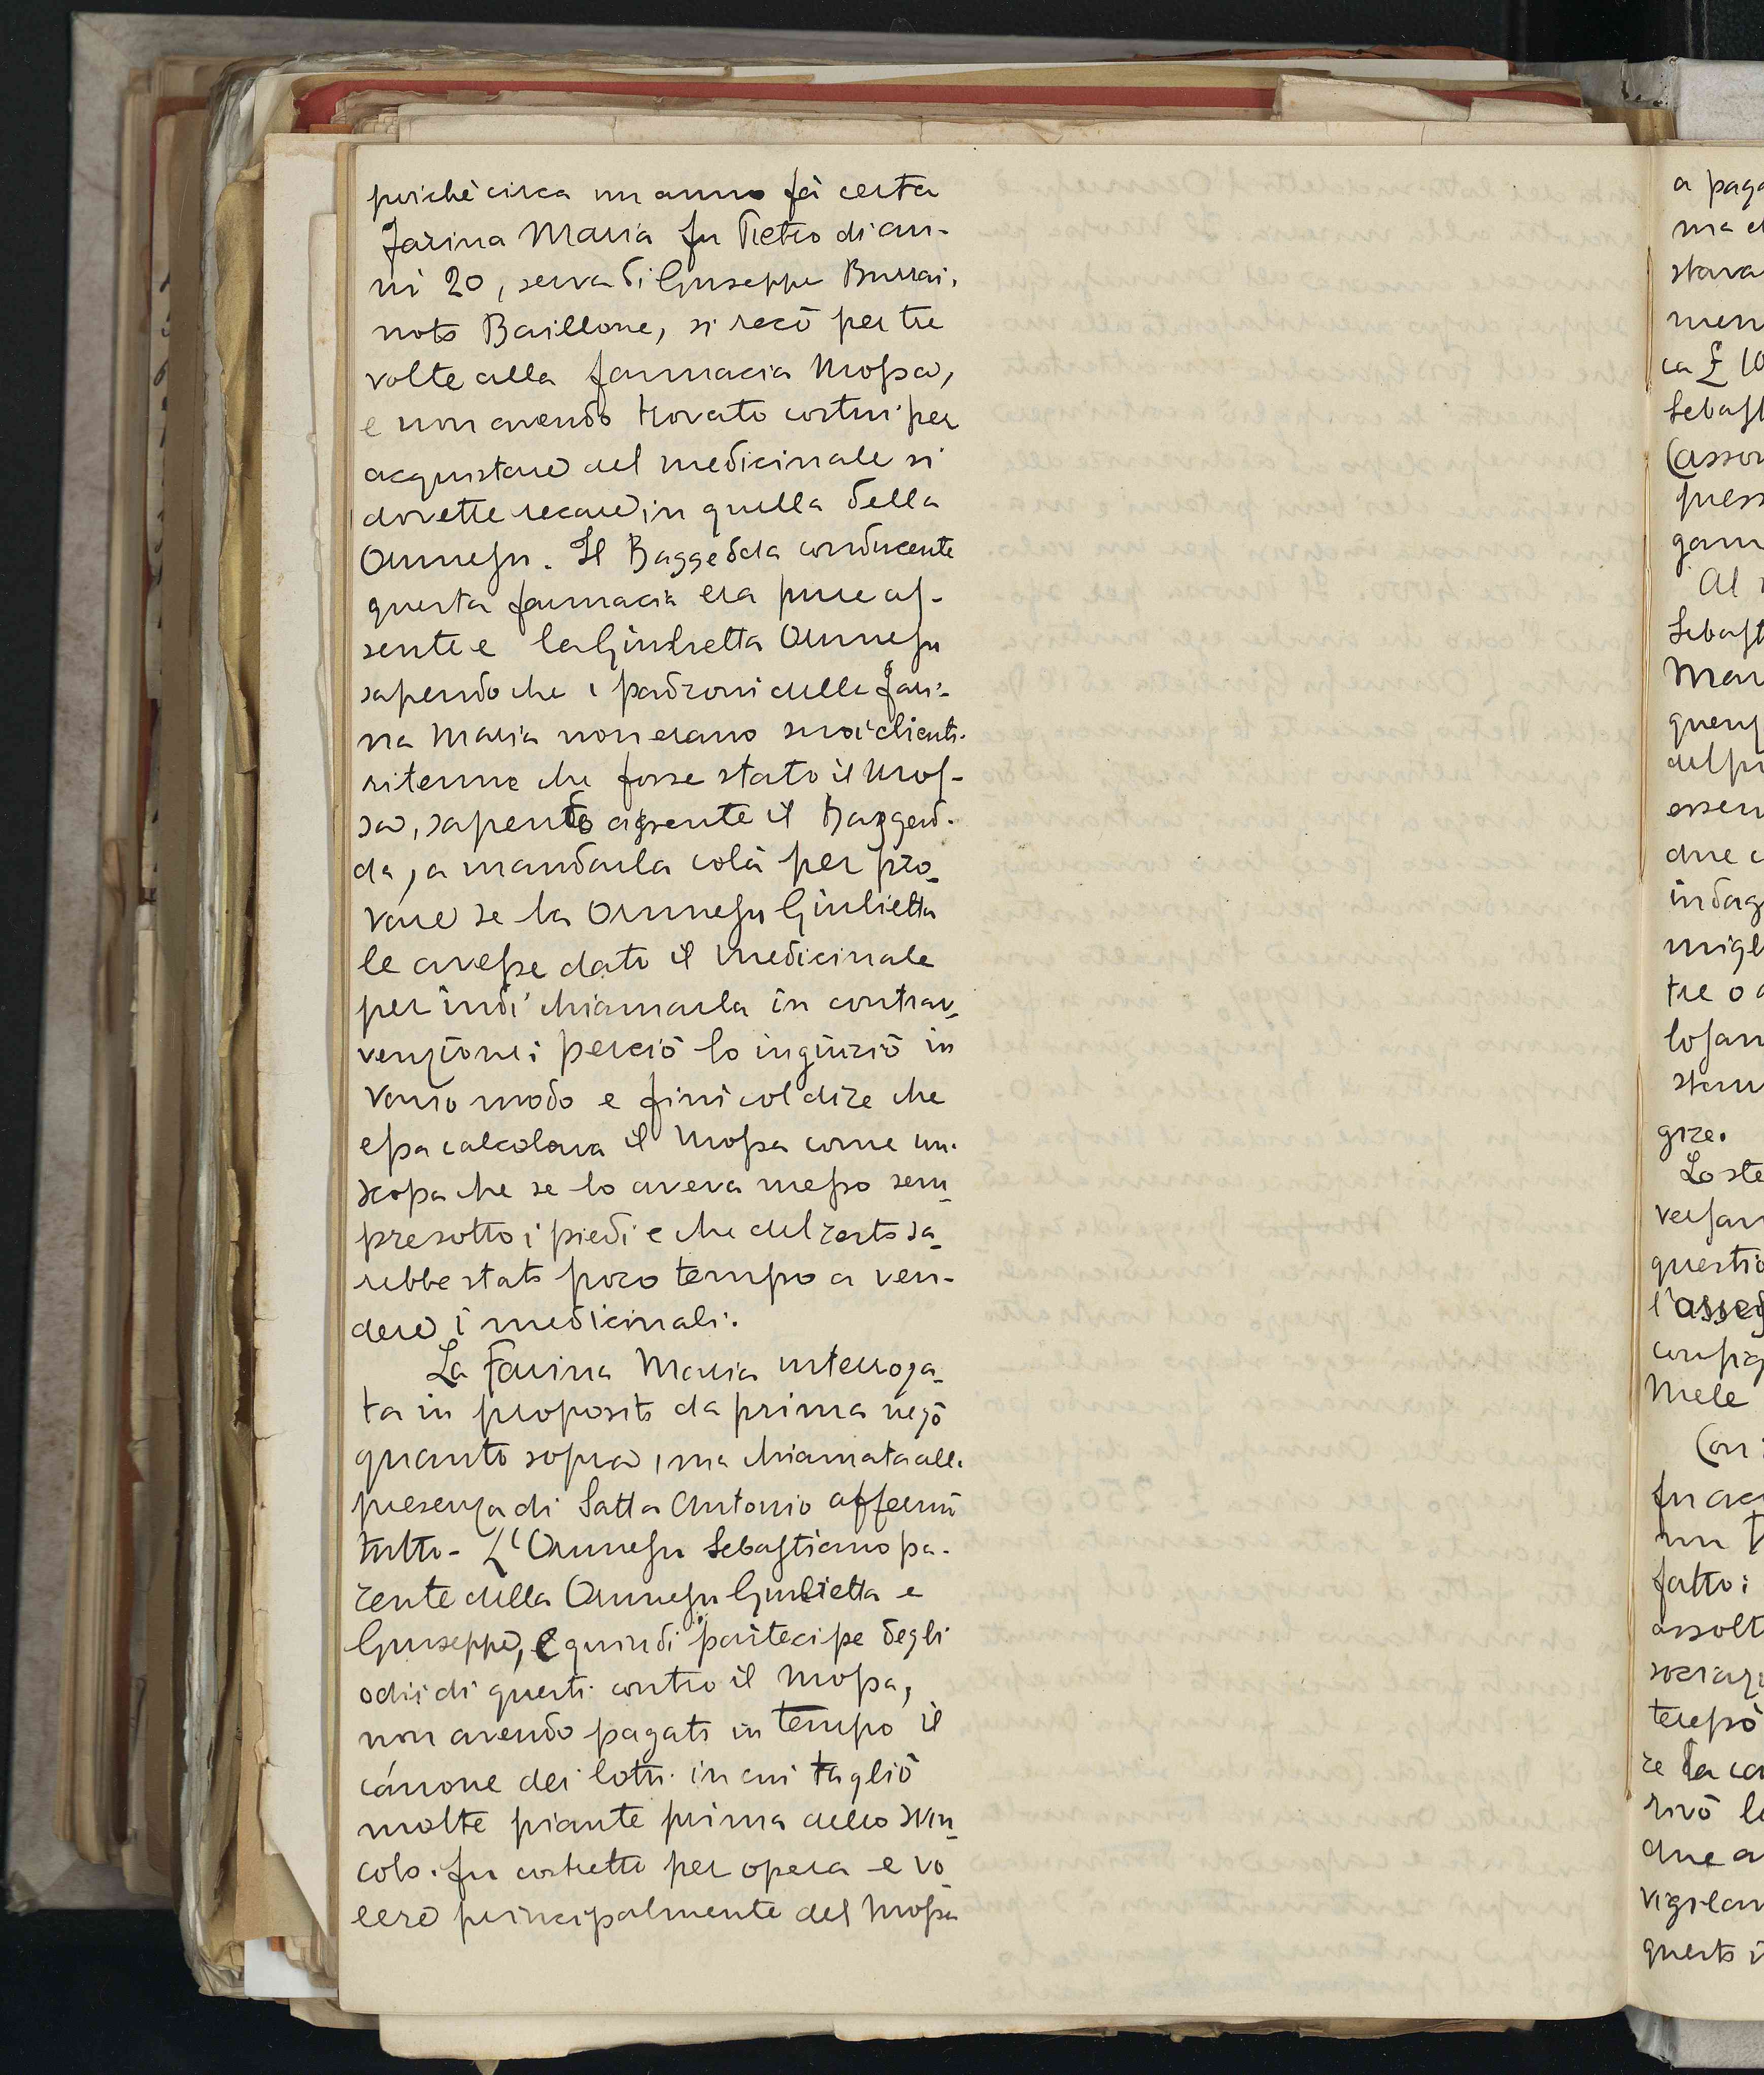 poichè circa un anno fà certa
Farina Maria fu Pietro di an-
ni 20, serva di Giuseppe Burrai,
noto Baillone, si recò per tre
volte alla farmacia Mossa,
e non avendo trovato costui per
acquistare del medicinale si
dovette recare in quella della
Onnesu. Il Baggedda conducente
questa farmacia era pure as-
sente e la Giulietta Onnesu
sapendo che i padroni della Fari-
na Maria non erano suoi clienti
ritenne che fosse stato il Mos-
sa, sapendo assente il Bagged-
da, a mandarla colà per pro-
vare se la Onnesu Giulietta
le avesse dato il medicinale
per indi chiamarla in contrav-
venzione; perciò lo ingiuriò in
vario modo e finì col dire che
essa calcolava il Mossa come un
scopa che se lo aveva messo sem-
pre sotto i piedi e che del resto sa-
rebbe stato poco tempo a ven-
dere i medicinali.
La Farina Maria interroga-
ta in proposito da prima negò
quanto sopra, ma chiamata alla
presenza di Satta Antonio affermò
tutto - L'Onnesu Sebastiano pa-
rente della Onnesu Giulietta e
Giuseppe, e quindi partecipe degli
odii di questi contro il Mossa,
non avendo pagato in tempo il
cánone dei lotti in cui tagliò
molte piante prima dello svin-
colo. fu costretto per opera e vo-
lere principalmente del Mossa
a paga
ma
stava
men
ca £ 10
Sebast
(assor
press
gam
Al
Sebast
Mar
quenz
del pr
essen
due
indag
migl
tre o
losam
stan
gire.
Lo ste
versar
questio
l'assed
consig
Mele
Con
fu
un
fatto:
assolt
sociaz
teressò
re la
rivò l
due a
vigilan
questo